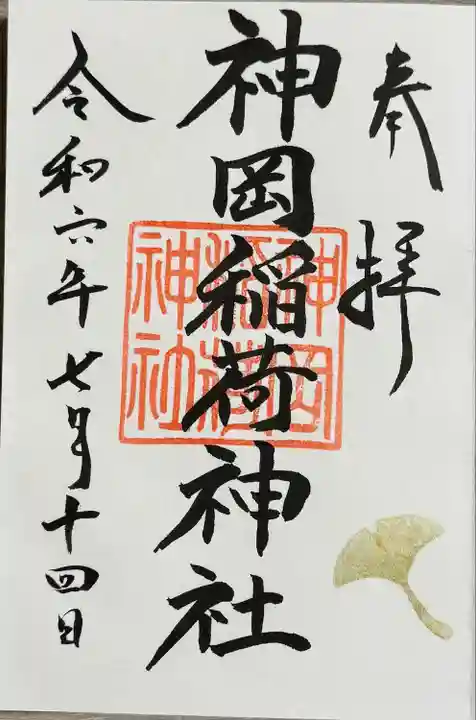 奉拝
神岡稲荷神社
神岡稲荷神社
令和六年七月十四日